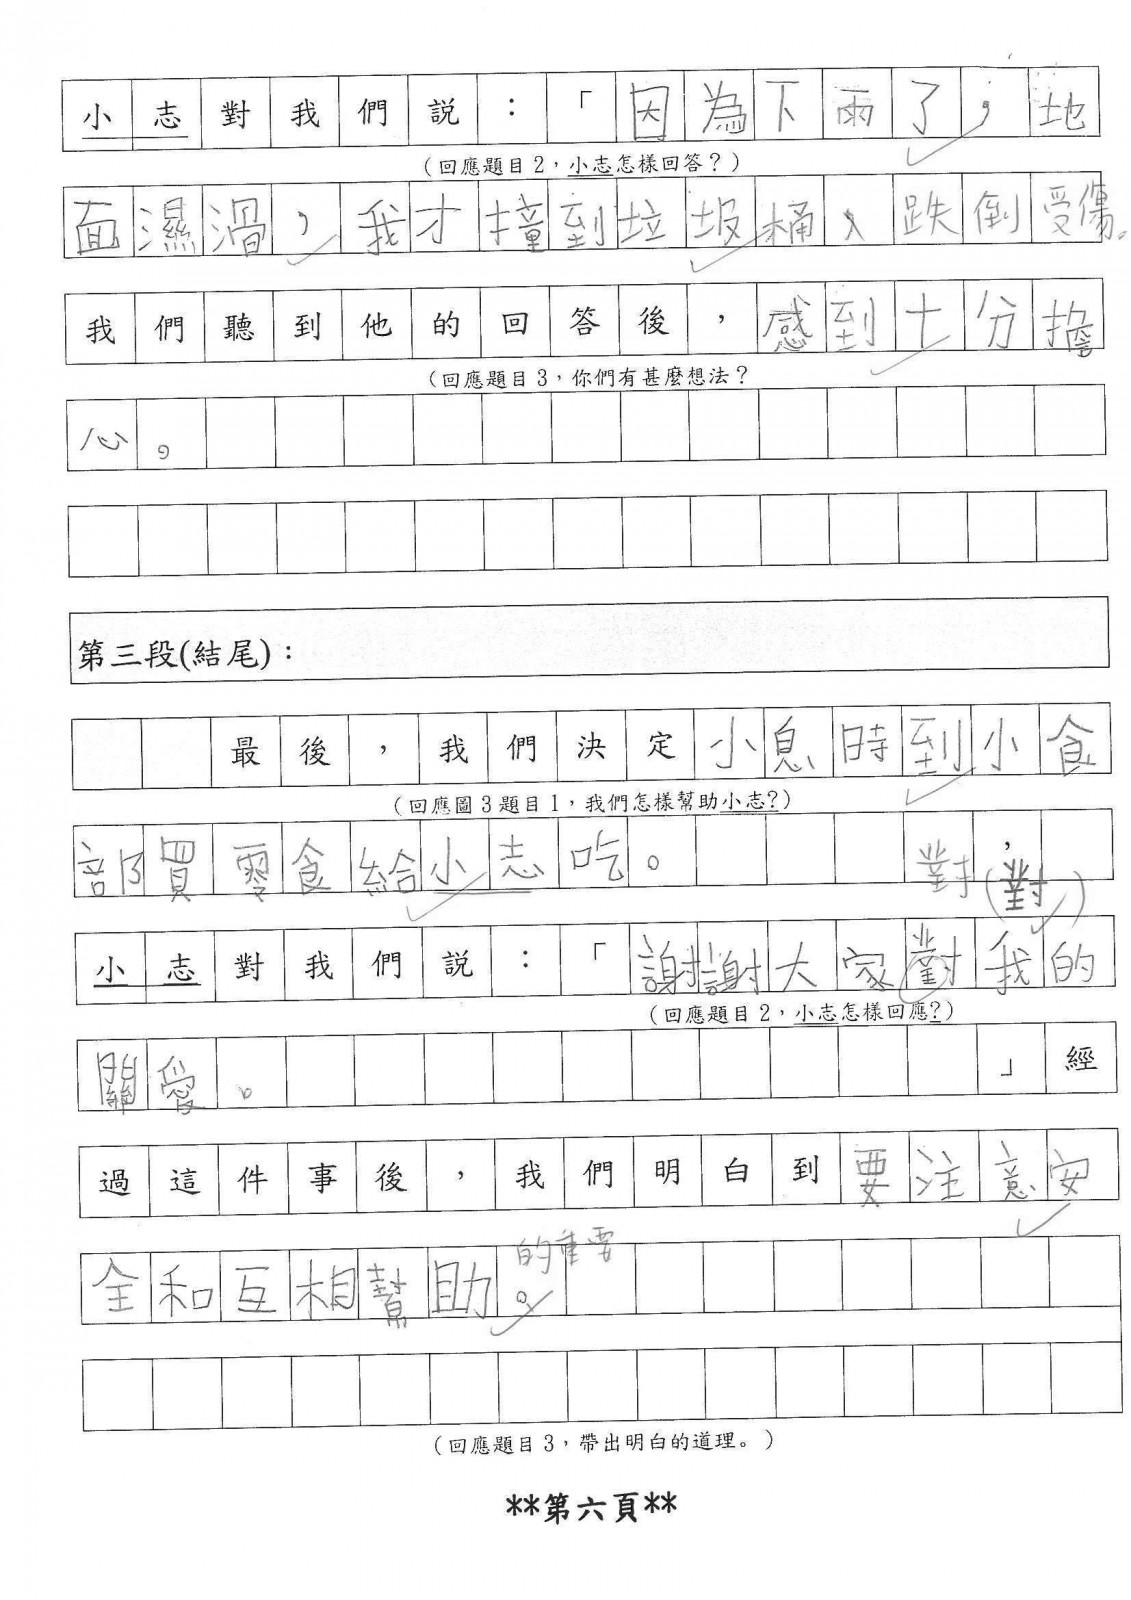 小志對我們說：「因為下雨了，地
（回應題目2，小志怎樣回答？）
面濕渦，我才撞到垃圾桶、跌倒受傷。
我們聽到他的回答後，感到十分擔
（回應題目3，你們有甚麼想法？
心。
第三段(結尾)：
最後，我們決定小息時到小食
（回應圖3題目1，我們怎樣幫助小志?）
部買零食給小志吃。，
對（對）
小志對我們說：「謝謝大家對我的
（回應題目2，小志怎樣回應?）
關愛。」經
過這件事後，我們明白到要注意安
的重要
全和互相幫助。
（回應題目3，帶出明白的道理。）
**第六頁**